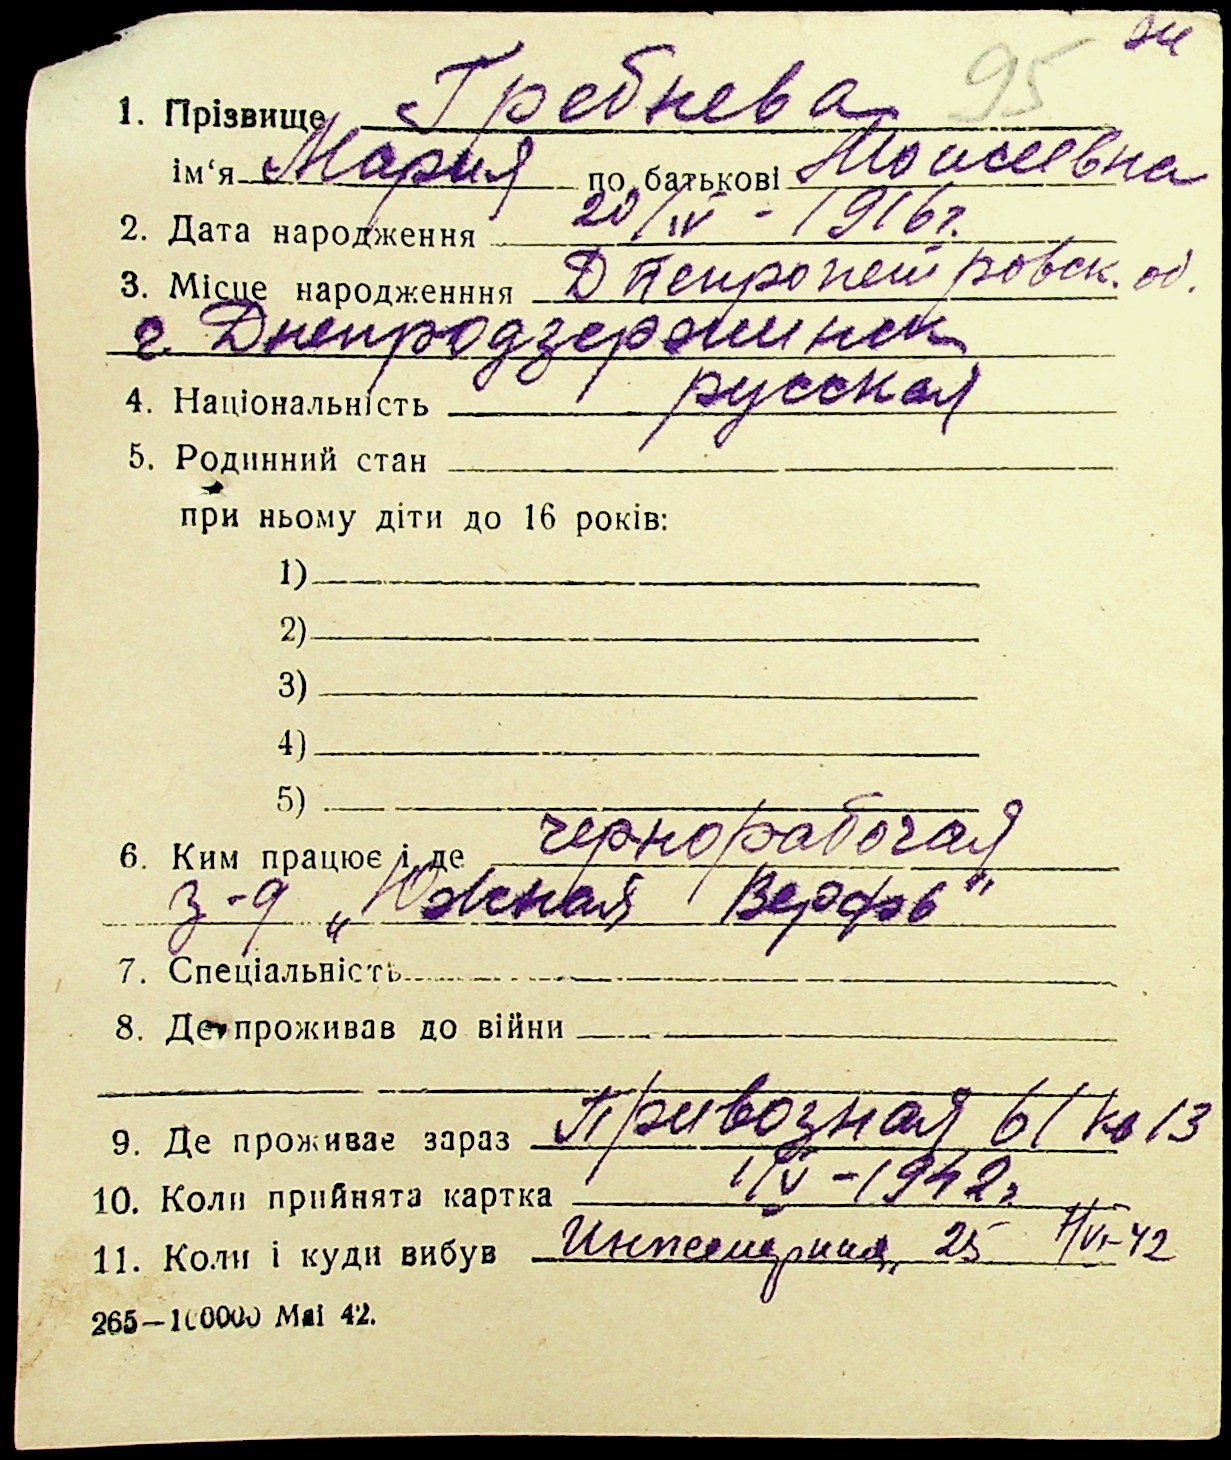 95
1. Прізвище Гребнева
ім‘я Мария по батькові Моисеевна
2. Дата народження 20/IV - 1916г.
3. Місце народженння Днепропетровск. об.
г. Днепродзержинск
4. Національність русская
5. Родинний стан
при ньому діти до 16 років:
1)
2)
3)
4)
5)
6. Ким працює і де чернорабочая
з-д „Южная Верфь"
7. Спеціальність
8. Де проживав до війни
9. Де проживає зараз Привозная 61 кв 13
10. Коли прийнята картка 1/V - 1942г.
11. Коли і куди вибув Инженерная, 25 1/VI-42
265—100000 Mai 42.